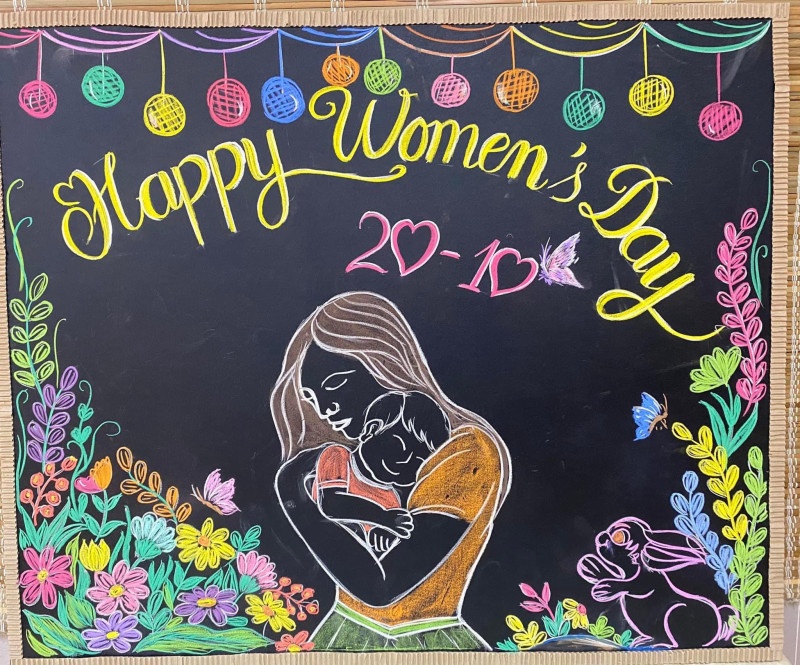 Happy Women's Day
20-10